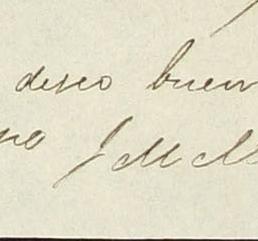 deseo buen
no J M M